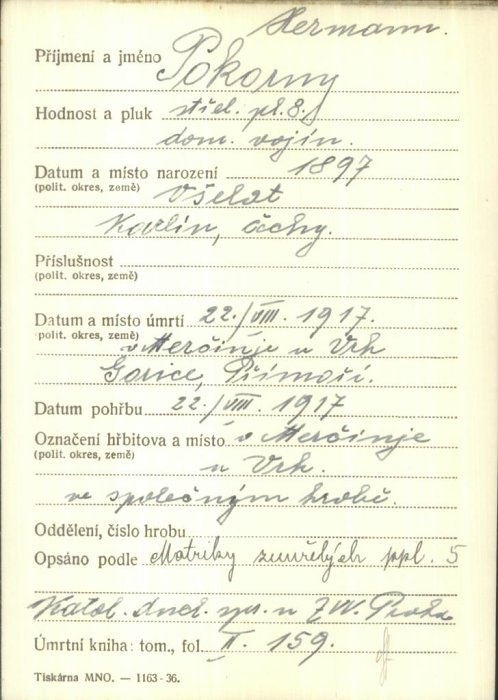 Hermann.
Příjmení a jméno Pokorny
Hodnost a pluk střel. pl. 8.
dom. vojín.
Datum a místo narození 1897
(polit. okres, země) Všelat
Karlín, Čechy.
Příslušnost
(polit. okres, země)
Datum a místo úmrtí 22./VIII. 1917.
(polit. okres, země) v Merčinje u Vrh
Gorice, Přímoří.
Datum pohřbu 22./VIII. 1917
Označení hřbitova a místo v Merčinje
(polit. okres, země) u Vrh.
ve společným hrobě.
Oddělení, číslo hrobu
Opsáno podle Matriky zemřelých ppl. 5
Katol. duch. spr. u ZVV. Praha
Úmrtní kniha: tom., fol. II. 159.
Tiskárna MNO. — 1163-36.